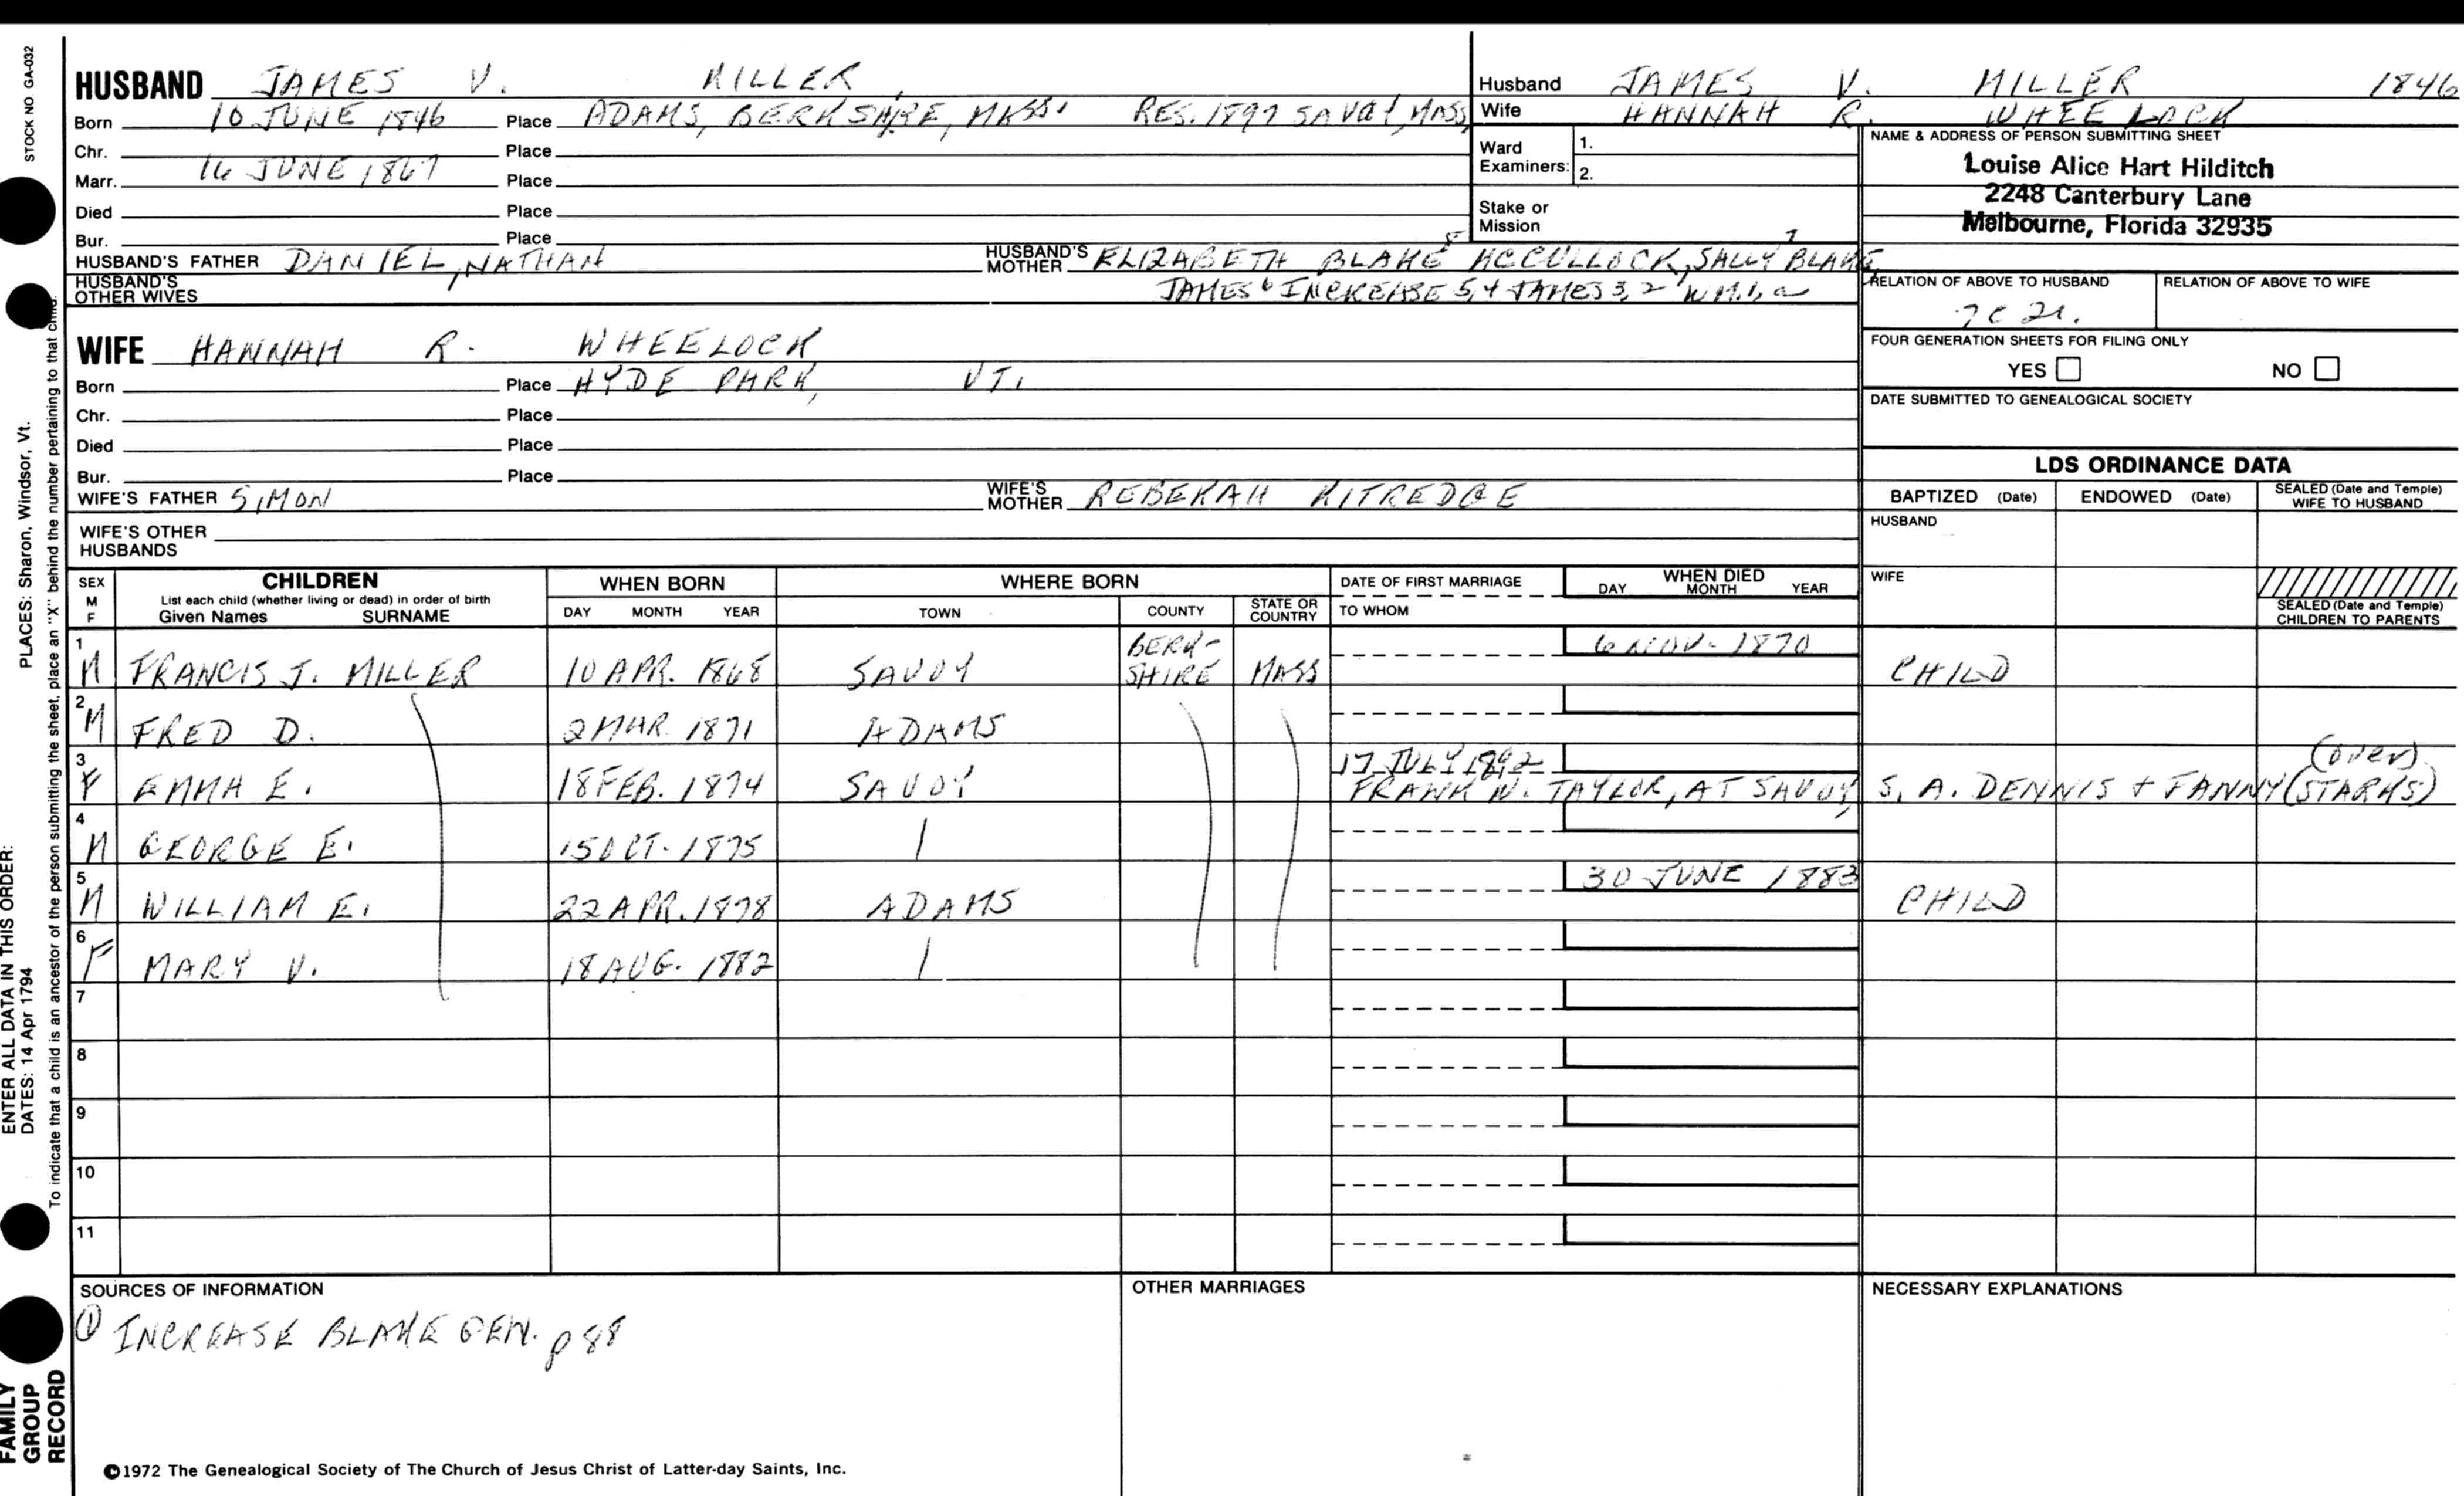 STOCK NO GA-032
HUSBAND JAMES V. MILLER
Born 10 JUNE 1846 Place ADAMS, BERKSHIRE, MASS. RES. 1897 SAVOY, MASS
Chr. Place
Marr. 16 JUNE 1867 Place
Died Place
Bur. Place
HUSBAND'S FATHER DANIEL NATHAN HUSBAND'S MOTHER ELIZABETH BLAKE 8 MCCULLOCK, SALLY BLAKE 7
HUSBAND'S OTHER WIVES JAMES 6 INCREASE 5,4 JAMES 3,2 WM. 1,
Husband JAMES V. MILLER 1846
Wife HANNAH R. WHEELOCK
Ward Examiners: 1.
2.
Stake or Mission
NAME & ADDRESS OF PERSON SUBMITTING SHEET
Louise Alice Hart Hilditch
2248 Canterbury Lane
Melbourne, Florida 32935
RELATION OF ABOVE TO HUSBAND RELATION OF ABOVE TO WIFE
7C 2r.
FOUR GENERATION SHEETS FOR FILING ONLY
YES NO
DATE SUBMITTED TO GENEALOGICAL SOCIETY
WIFE HANNAH R. WHEELOCK
Born Place HYDE PARK, VT.
Chr. Place
Died Place
Bur. Place
WIFE'S FATHER SIMON WIFE'S MOTHER REBEKAH KITREDGE
WIFE'S OTHER HUSBANDS
LDS ORDINANCE DATA
BAPTIZED (Date) ENDOWED (Date) SEALED (Date and Temple) WIFE TO HUSBAND
HUSBAND
WIFE
SEALED (Date and Temple) CHILDREN TO PARENTS
SEX M F CHILDREN List each child (whether living or dead) in order of birth Given Names SURNAME
WHEN BORN DAY MONTH YEAR
WHERE BORN TOWN COUNTY STATE OR COUNTRY
DATE OF FIRST MARRIAGE TO WHOM
WHEN DIED DAY MONTH YEAR
1 M FRANCIS J. MILLER 10 APR. 1868 SAVOY BERK-SHIRE MASS 6 NOV. 1870 CHILD
2 M FRED D. 2 MAR. 1871 ADAMS
3 F EMMA E. 18 FEB. 1874 SAVOY 17 JULY 1892 (over)
FRANK N. TAYLOR, AT SAVOY, S. A. DENNIS + FANNY (STARKS)
4 M GEORGE E. 15 OCT. 1875
5 M WILLIAM E. 22 APR. 1878 ADAMS 30 JUNE 1883 CHILD
6 F MARY V. 18 AUG. 1882
7
8
9
10
11
SOURCES OF INFORMATION
① INCREASE BLAKE GEN. p 88
OTHER MARRIAGES
NECESSARY EXPLANATIONS
©1972 The Genealogical Society of The Church of Jesus Christ of Latter-day Saints, Inc.
ENTER ALL DATA IN THIS ORDER:
PLACES: Sharon, Windsor, Vt.
DATES: 14 Apr 1794
To indicate that a child is an ancestor of the person submitting the sheet, place an "X" behind the number pertaining to that child.
FAMILY
GROUP
RECORD